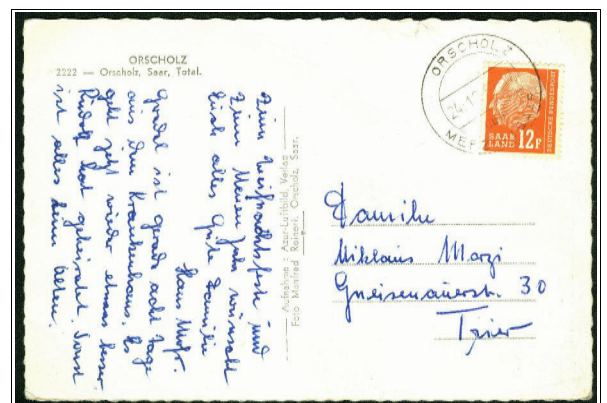 ORSCHOLZ
2222 — Orscholz, Saar, Total.
Zum Weihnachtsfeste und
zum Neuen Jahr wünscht
Euch alles Gute Familie
Hans
Gredel ist gerade acht Tage
aus dem Krankenhaus. Es
geht jetzt wieder etwas besser.
Rudolf hat geheiratet. Sonst
ist alles beim Alten.
Aufnahme: Azur-Luftbild, Verlag
Foto Manfred Reinert, Orscholz, Saar.
ORSCHOLZ
SAAR
LAND
12F
DEUTSCHE BUNDESPOST
Familie
Niklaus Marzi
Gneisenauerstr. 30
Trier